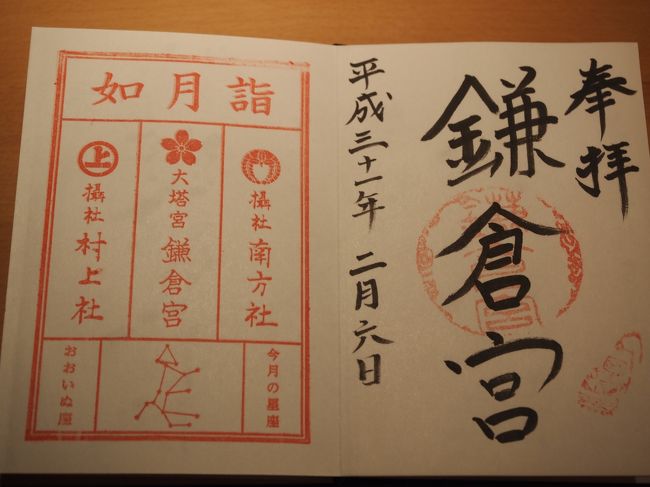 奉拝
鎌倉宮
平成三十一年 二月六日
如月詣
攝社 南方社
大塔宮 鎌倉宮
上 攝社 村上社
今月の星座
おおいぬ座